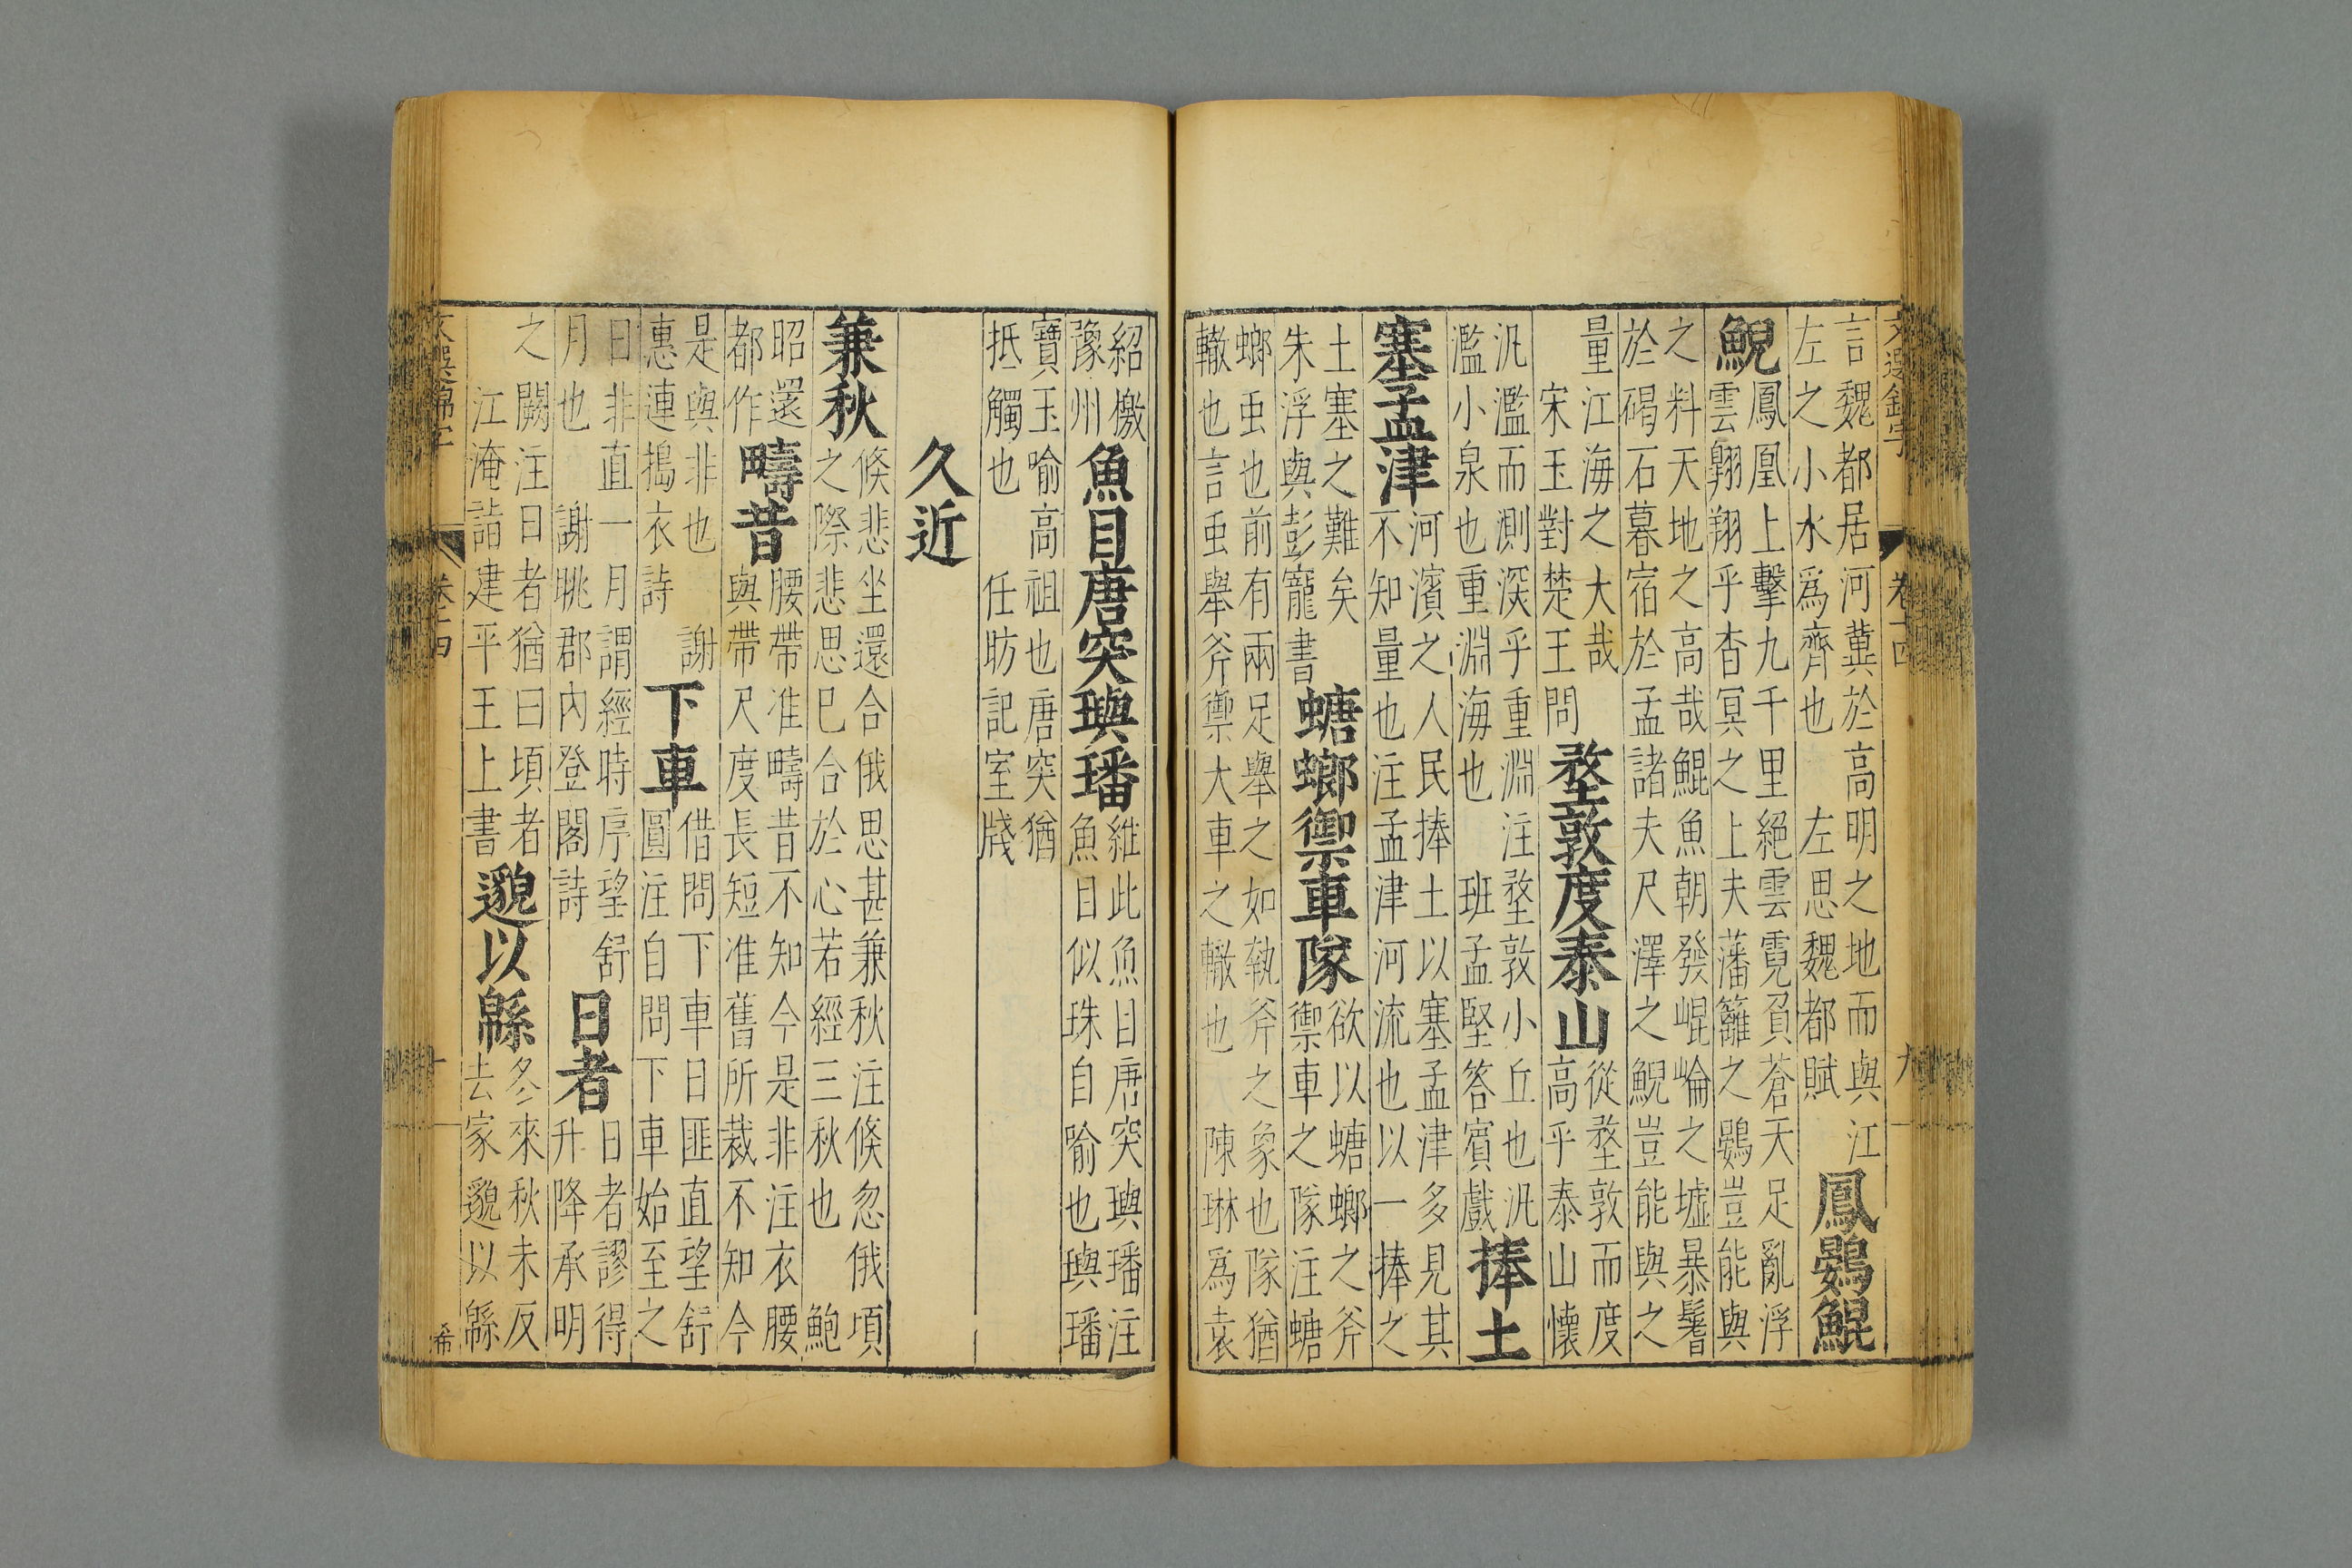 文選錦字 卷十四 九
言魏都居河冀於高明之地而與江
左之小水爲齊也 左思魏都賦
鳳鷃鯤
鯢
鳳凰上擊九千里絕雲霓負蒼天足亂浮
雲翺翔乎杳冥之上夫藩籬之鷃豈能與
之料天地之高哉鯤魚朝發崐崘之墟暴鬐
於碣石暮宿於孟諸夫尺澤之鯢豈能與之
量江海之大哉
宋玉對楚王問
堥敦度泰山
從堥敦而度
高乎泰山懷
汎濫而測深乎重淵注堥敦小丘也汎
濫小泉也重淵海也 班孟堅答賓戲
捧土
塞孟津
河濱之人民捧土以塞孟津多見其
不知量也注孟津河流也以一捧之
土塞之難矣
朱浮與彭寵書
螗螂禦車隊
欲以螗螂之斧
禦車之隊注螗
螂虫也前有兩足舉之如執斧之象也隊猶
轍也言虫舉斧禦大車之轍也 陳琳爲袁
紹檄
豫州
魚目唐突璵璠
維此魚目唐突璵璠注
魚目似珠自喻也璵璠
寶玉喻高祖也唐突猶
抵觸也 任昉記室牋
久近
兼秋
倏悲坐還合俄思甚兼秋注倏忽俄頃
之際悲思已合於心若經三秋也 鮑
昭還
都作
疇昔
腰帶准疇昔不知今是非注衣腰
與帶尺度長短准舊所裁不知今
是與非也 謝
惠連搗衣詩
下車
借問下車日匪直望舒
圓注自問下車始至之
日非直一月謂經時序望舒
月也 謝眺郡內登閣詩
日者
日者謬得
升降承明
之闕注日者猶曰頃者
江淹詣建平王上書
邈以緜
冬來秋未反
去家邈以緜
文選錦字 卷十四 十 希